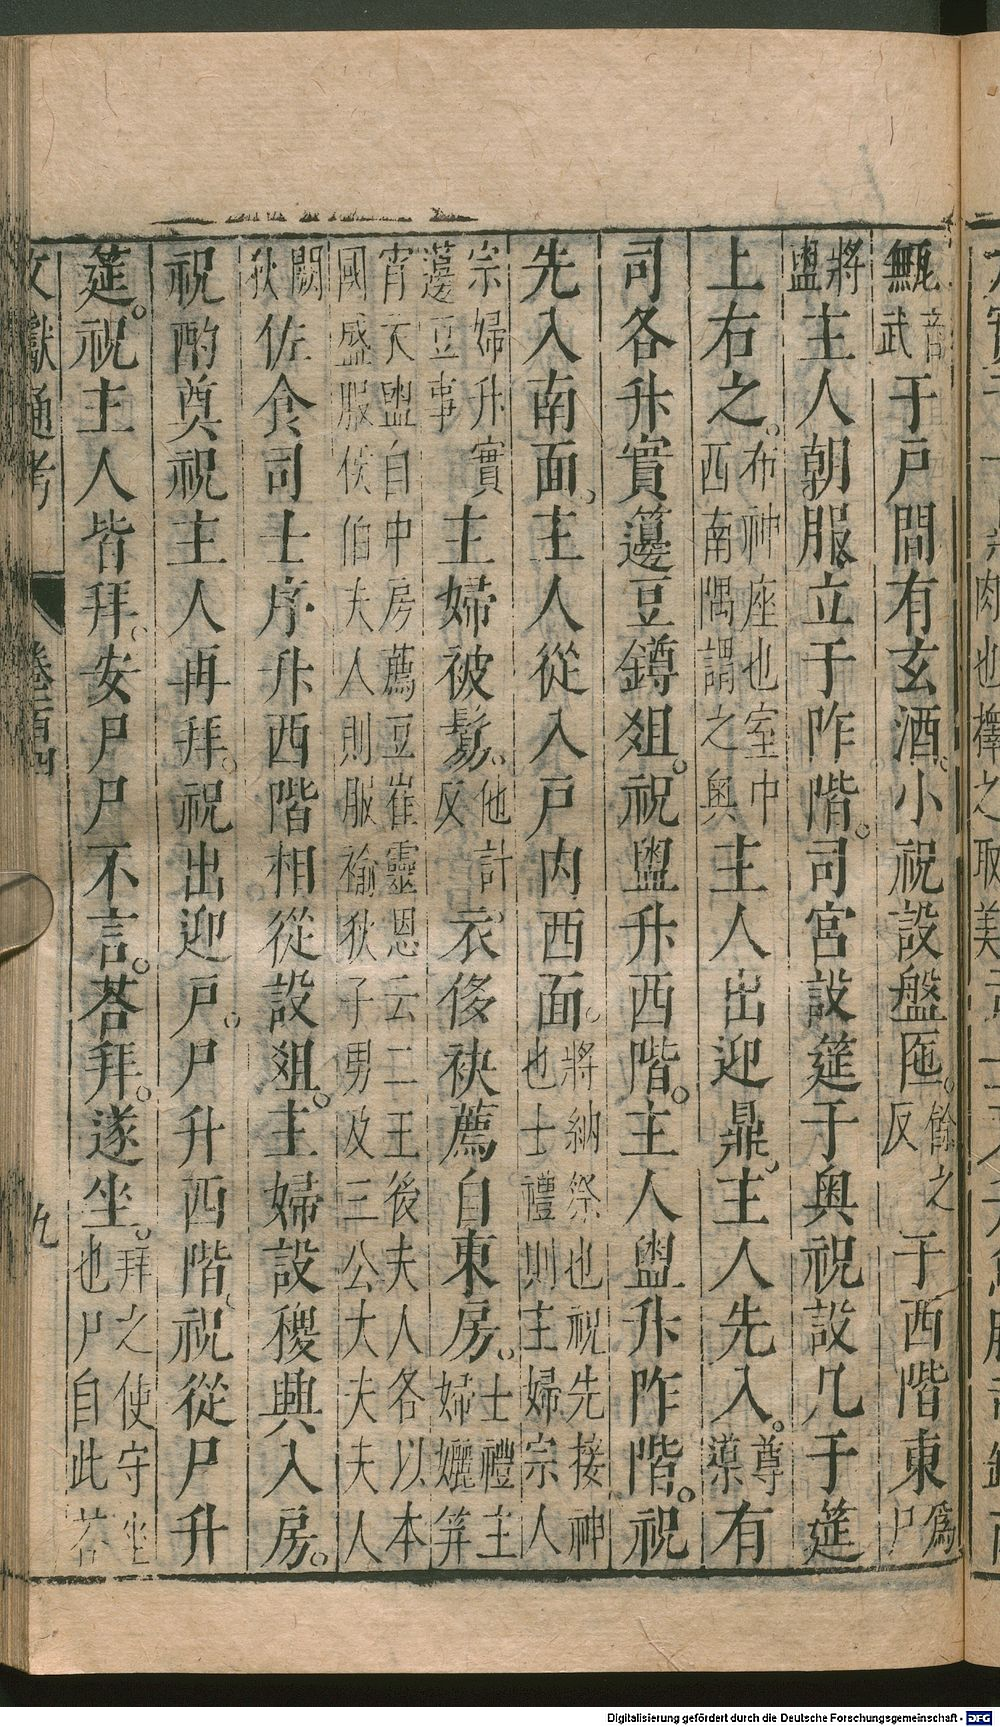 甒音武于戶間有玄酒。小祝設盤匜。餘之反于西階東為尸
將盥主人朝服立于阼階。司宮設筵于奥祝設几于筵
上右之。布神座也室中西南隅謂之奥主人出迎鼎。主人先入。尊導有
司各升實籩豆鐏俎。祝盥升西階。主人盥升阼階。祝
先入南面。主人從入戶内西面。將納祭也祝先接神也士禮則主婦宗人
宗婦升實籩豆事主婦被鬄。他計反衣侈袂薦自東房。士禮主婦纚笄
宵衣盥自中房薦豆崔靈恩云二王後夫人各以本國盛服侯伯夫人則服褕狄子男及三公大夫夫人
闕狄佐食司士序升西階相從設俎。主婦設稷興入房。
祝酌奠祝主人再拜。祝出迎戶。尸升西階。祝從尸升
筵。祝主人皆拜。安尸尸不言。荅拜。遂坐。拜之使守坐也尸自此荅
文獻通考
九
Digitalisierung gefördert durch die Deutsche Forschungsgemeinschaft - DFG